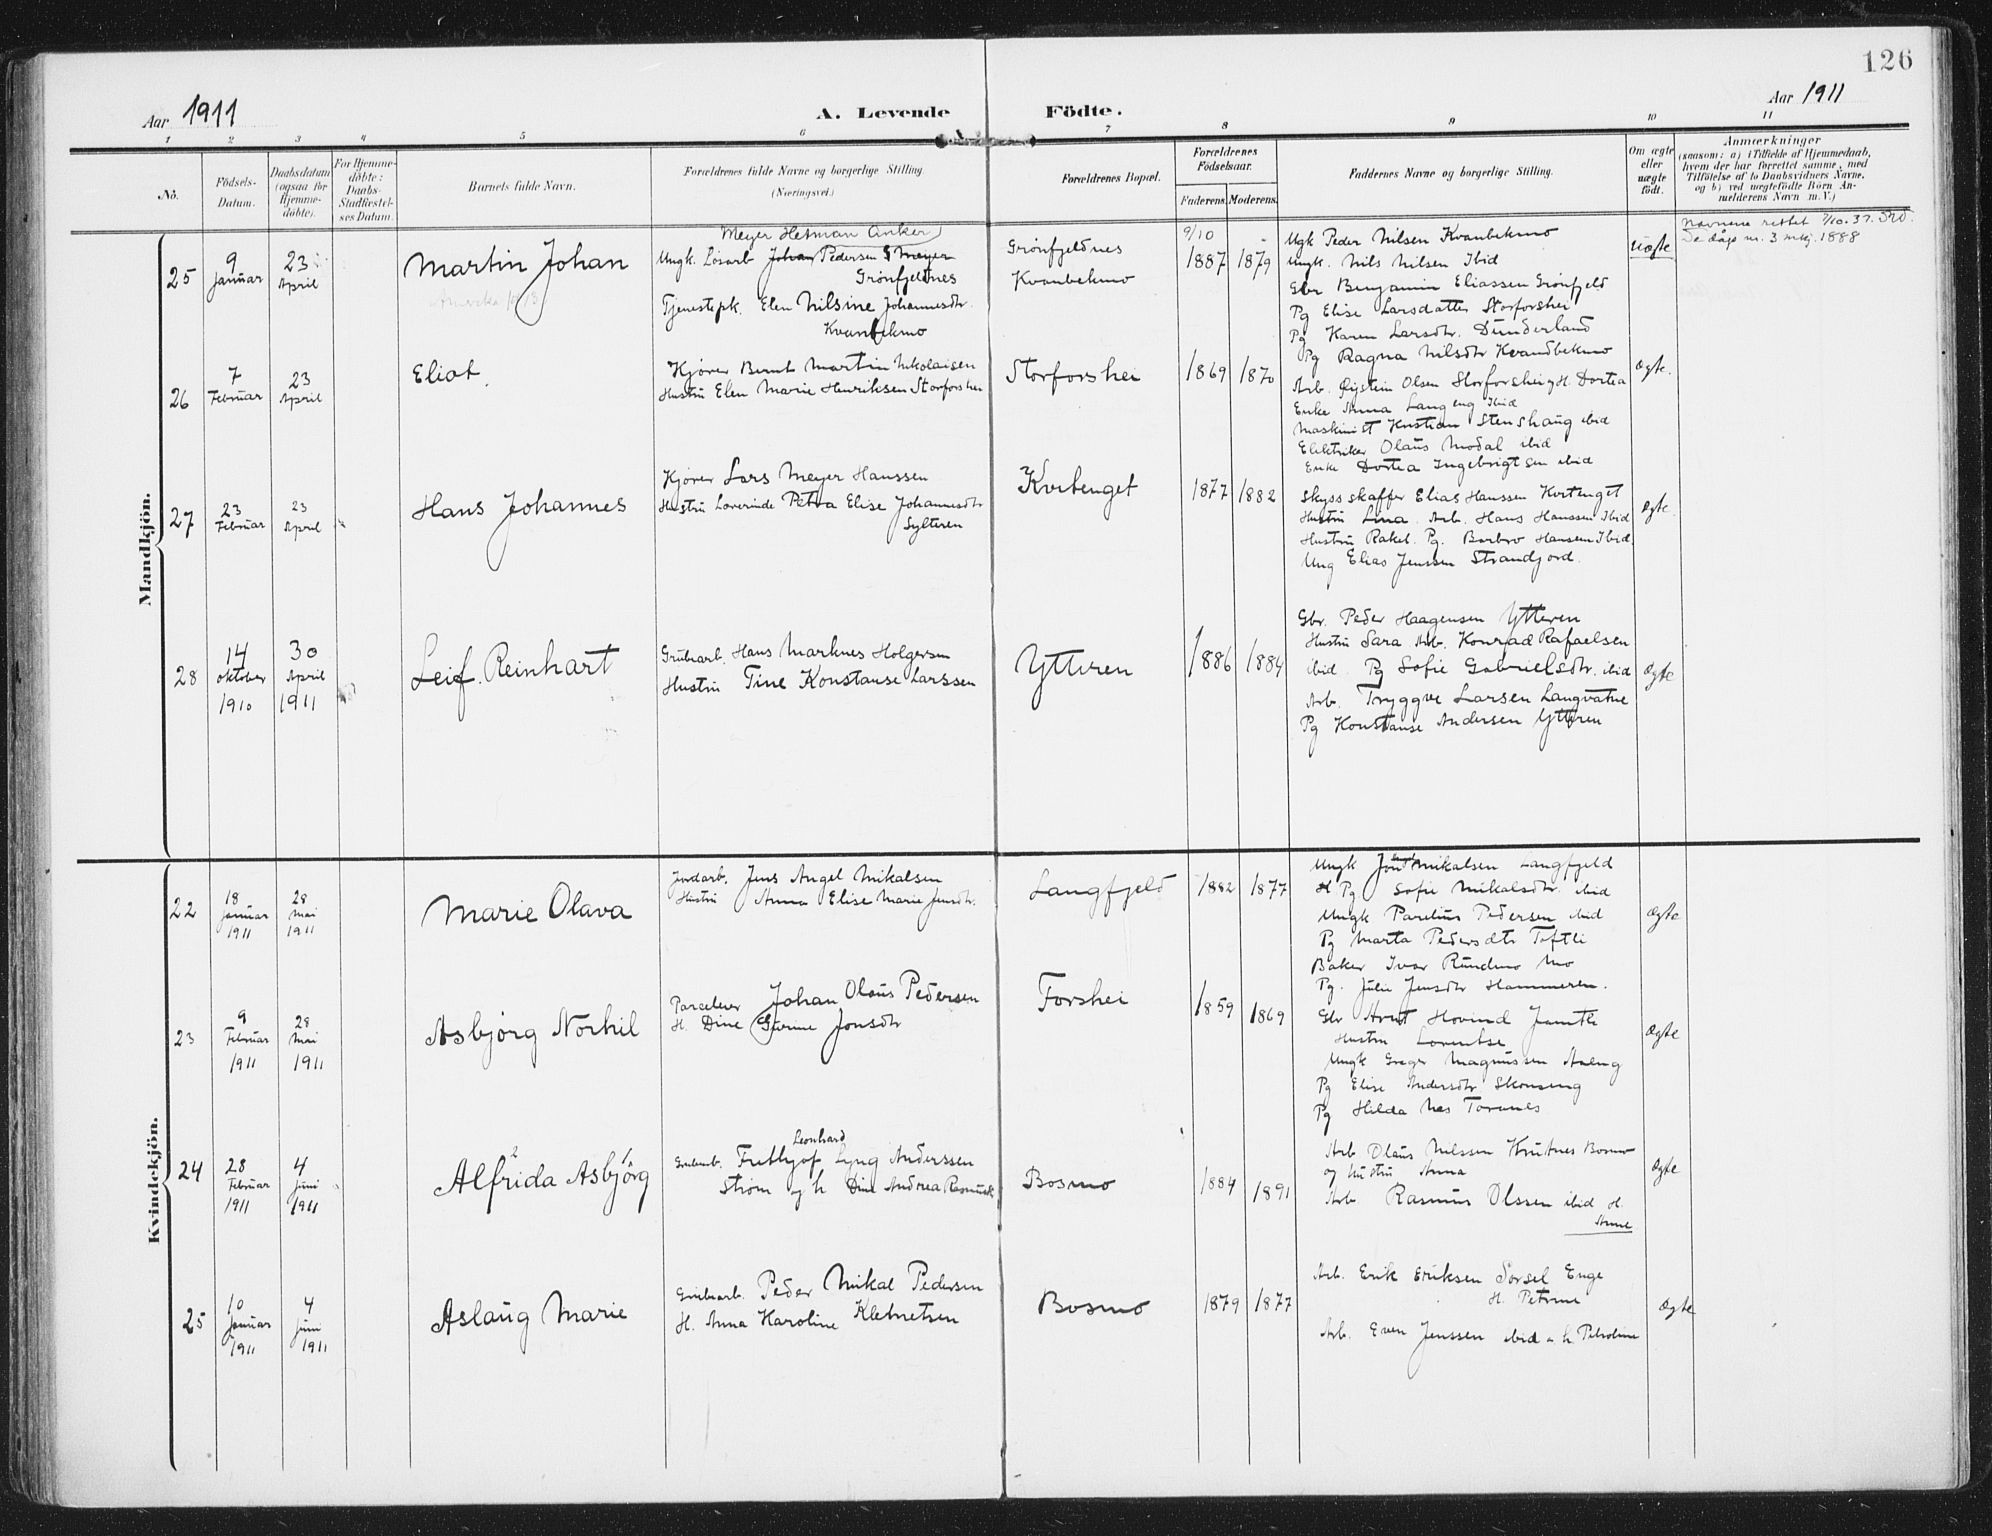 126
Aar 1911
A. Levende Födte.
Aar 1911
1 2 3 4 5 6 7 8 9 10 11
No.
Födsels-Datum.
Daabsdatum (ogsaa for Hjemmedöbte).
For Hjemmedöbte: Daabs-Stadfæstelses Datum.
Barnets fulde Navn.
Forældrenes fulde Navne og borgerlige Stilling.
(Næringsvei.)
Forældrenes Bopæl.
Forældrenes Födselsaar.
Faderens. Moderens.
Faddernes Navne og borgerlige Stilling.
Om ægte eller uægte födt.
Anmærkninger
(saasom: a) i Tilfælde af Hjemmedaab,
hvem der har forrettet samme, med
Tilföielse af to Daabsvidners Navne,
og b) ved uægtefödte Börn An-
melderens Navn m. V.)
Mandkjön.
25
9 Januar
23 April
Martin Johan
Meyer Herman Anker
Ungk. Løsarb Johan Pedersen Meyer
Grönfjeldnes
Tjenestepk. Elen Nilsine Johannesdtr.
Kvanbekmo
Grönfjeldnes
Kvanbekmo
9/10
1887 1879
Ugk Peder Nilsen Kvanbekmo
Ungk. Nils Nilsen Ibid
Gbr Benjamin Eliassen Grönfjeld
Pg Elise Larsdatter Storforshei
Pg Karen Larsdtr. Dunderland
Pg Ragna Nilsdtr Kvandbekmo
uægte
Navnene rettet 7/10.37.
Se dåps nr. 3 mkj. 1888
26
7 Februar
23 April
Eliot
Kjører Bernt Martin Nikolaisen
Hustru Elen Marie Henriksen Storforshei
Storforshei
1869 1870
Arb. Øystein Olsen Storforshei og H. Dortea
Enke Anna Langeng Ibid
Maskinist Kristian Stenshaug ibid
Elektriker Olaus Modal ibid
Enke Dortea Ingebrigtsen ibid
Ægte.
27
23 Februar
23 April
Hans Johannes
Kjører Lars Meyer Hanssen
Hustru Loverinde Petra Elise Johannesdtr
Sylteren
Kvitenget
1877 1882
Skysskaffer Elias Hanssen Kvitenget
Hustru Lina. Arb. Hans Hanssen Ibid
Hustru Rakel. Pg. Barbro Hansen Ibid.
Ung Elias Jenssen Strandjord.
Ægte.
28
14 Oktober 1910
30 April 1911
Leif. Reinhart
Grubearb. Hans Marknes Holgersen
Hustru Tine Konstanse Larssen
Ytteren
1886 1884
Gbr. Peder Haagensen Ytteren
Hustru Sara Arb. Konrad Rafaelsen
ibid. Pg Sofie Gabrielsdtr. ibid
Arb. Tryggve Larsen Langvatne
Pg Konstanse Andersen Ytteren
Ægte
Kvindekjön.
22
18 Januar 1911
28 Mai 1911
Marie Olava
Jordarb. Jens Angel Mikalsen
Hustru Anna Elise Marie Jensdtr.
Langfjeld
1882 1877
Ungk Mikalsen Langfjeld
Pg Sofie Mikalsdtr. ibid
Ungk Parelius Pedersen ibid
Pg Marta Pedersdtr Toftli
Baker Ivar Rundmo Mo
Pg. Julie Jensdtr Hammeren.
Ægte
23
9 Februar 1911
28 Mai 1911
Asbjørg Norhil
Parcelleier Johan Olaus Pedersen
H. Dine Gurine Jonsdtr
Forshei
1859 1869
Gbr Arnt Hovind Jamtli
Hustru Lorentse
Ungk Greger Magnussen Aseng
Pg Elise Andersdtr Skonseng
Pg Hilda Nes Toranes
Ægte
24
28 Februar 1911
4 Juni 1911
Alfrida Asbjörg
2 1
Leonhard
Grubearb. Frithjof Lyng Anderssen
Strøm og h. Dine Andrea Rasmusk
Bosmo
1884 1891
Arb Olaus Nilssen Knutnes Bosmo
og Hustru Anna
Arb. Rasmus Olssen ibid H.
Anne
Ægte
25
10 Januar 1911
4 Juni 1911
Aslaug Marie
Grubearb. Peder Mikal Pedersen
H. Anna Karoline Klemetsen
Bosmo
1879 1877
Arb. Erik Eriksen Sorsel Enge
H. Petrine
Arb. Even Jenssen ibid h. Petroline
Ægte